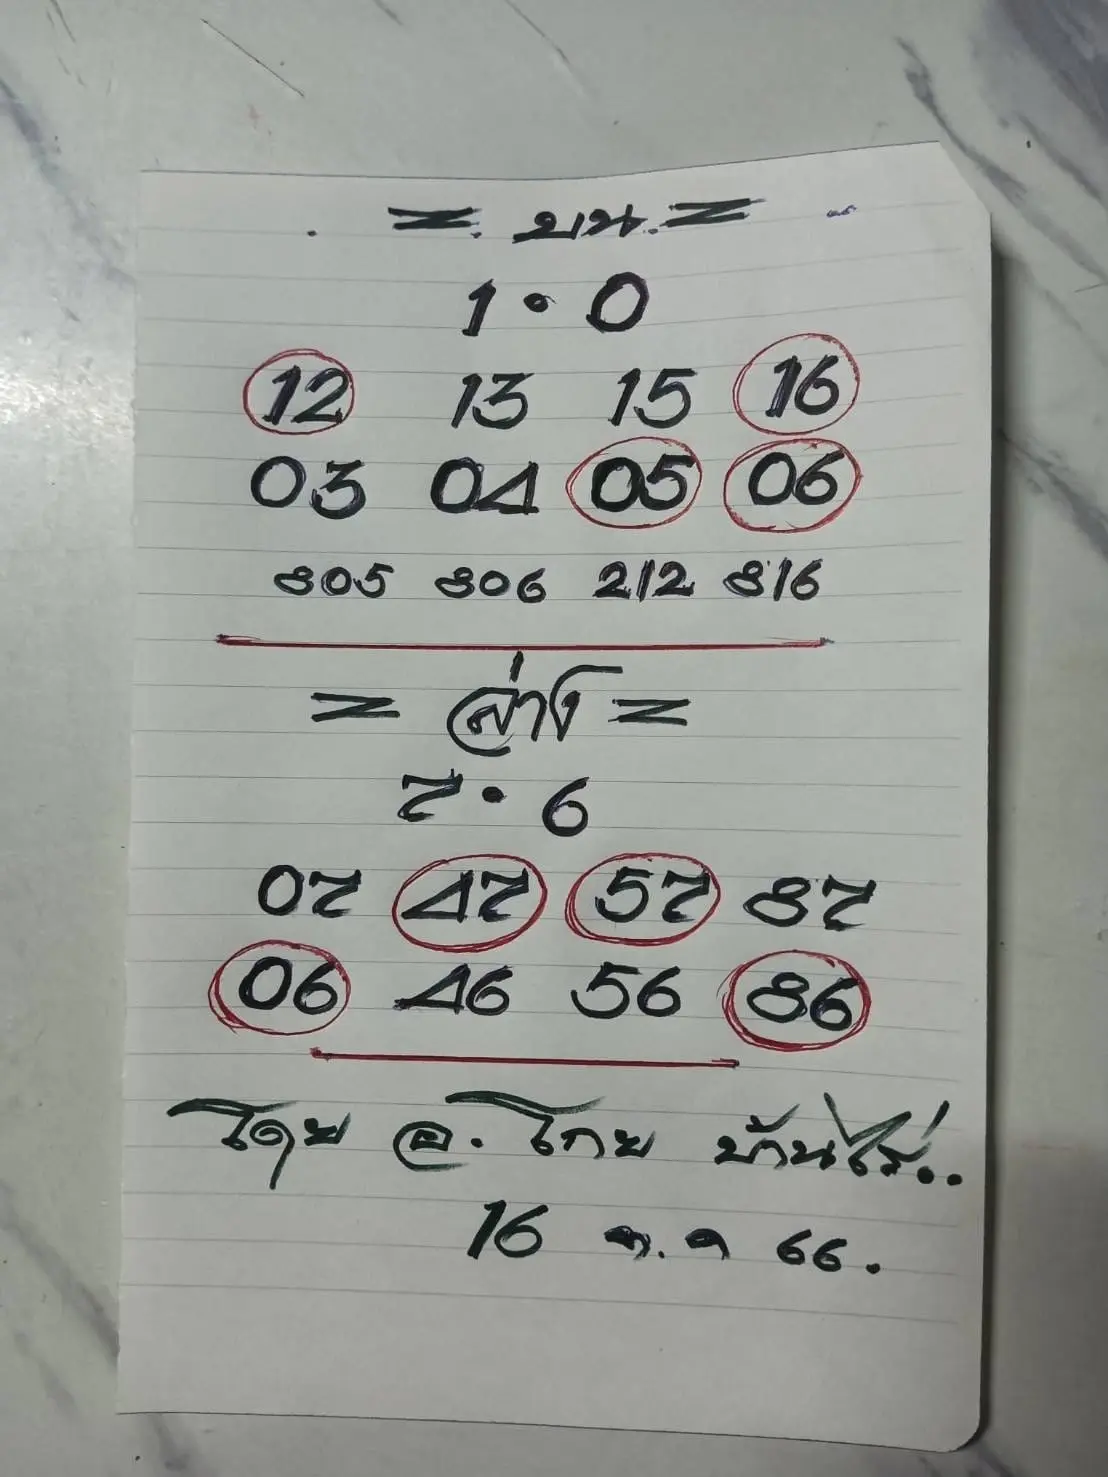 = บน =
1 • 0
12 13 15 16
03 04 05 06
805 806 212 816
= ล่าง =
7 • 6
07 47 57 87
06 46 56 86
โดย อ. โกย บ้านไร่..
16 ต.ค 66.